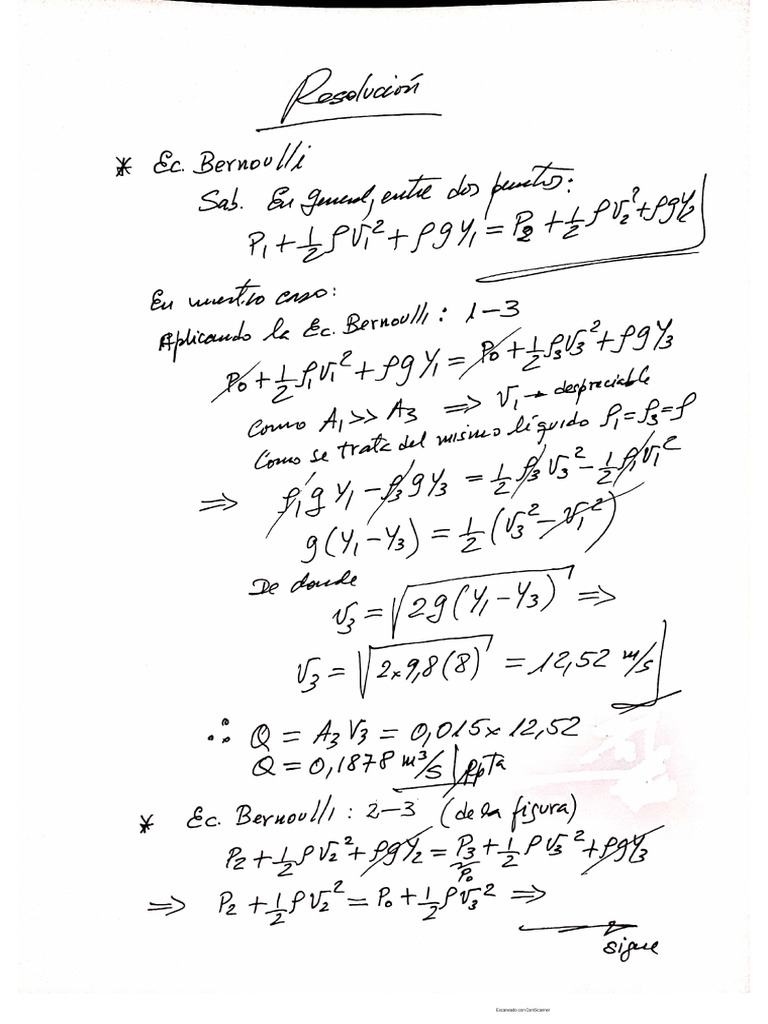 Resolución
* Ec. Bernoulli
Sab. En general, entre dos puntos:
P₁ + 1/2 ρV₁² + ρgY₁ = P₂ + 1/2 ρV₂² + ρgY₂
En nuestro caso:
Aplicando la Ec. Bernoulli: 1-3
P₀ + 1/2 ρ₁V₁² + ρgY₁ = P₀ + 1/2 ρ₃V₃² + ρgY₃
Como A₁ >> A₃ ⇒ V₁ → despreciable
Como se trata del mismo líquido ρ₁=ρ₃=ρ
⇒ ρ₁gY₁ - ρ₃gY₃ = 1/2 ρ₃V₃² - 1/2 ρ₁V₁²
g(Y₁-Y₃) = 1/2 (V₃² - V₁²)
De donde
V₃ = √2g(Y₁-Y₃) ⇒
V₃ = √2×9,8(8) = 12,52 m/s
∴ Q = A₃V₃ = 0,015×12,52
Q = 0,1878 m³/s Rpta
* Ec. Bernoulli: 2-3 (de la figura)
P₂ + 1/2 ρV₂² + ρgY₂ = P₃ + 1/2 ρV₃² + ρgY₃
P₀
⇒ P₂ + 1/2 ρV₂² = P₀ + 1/2 ρV₃² ⇒
sigue
Escaneado con CamScanner